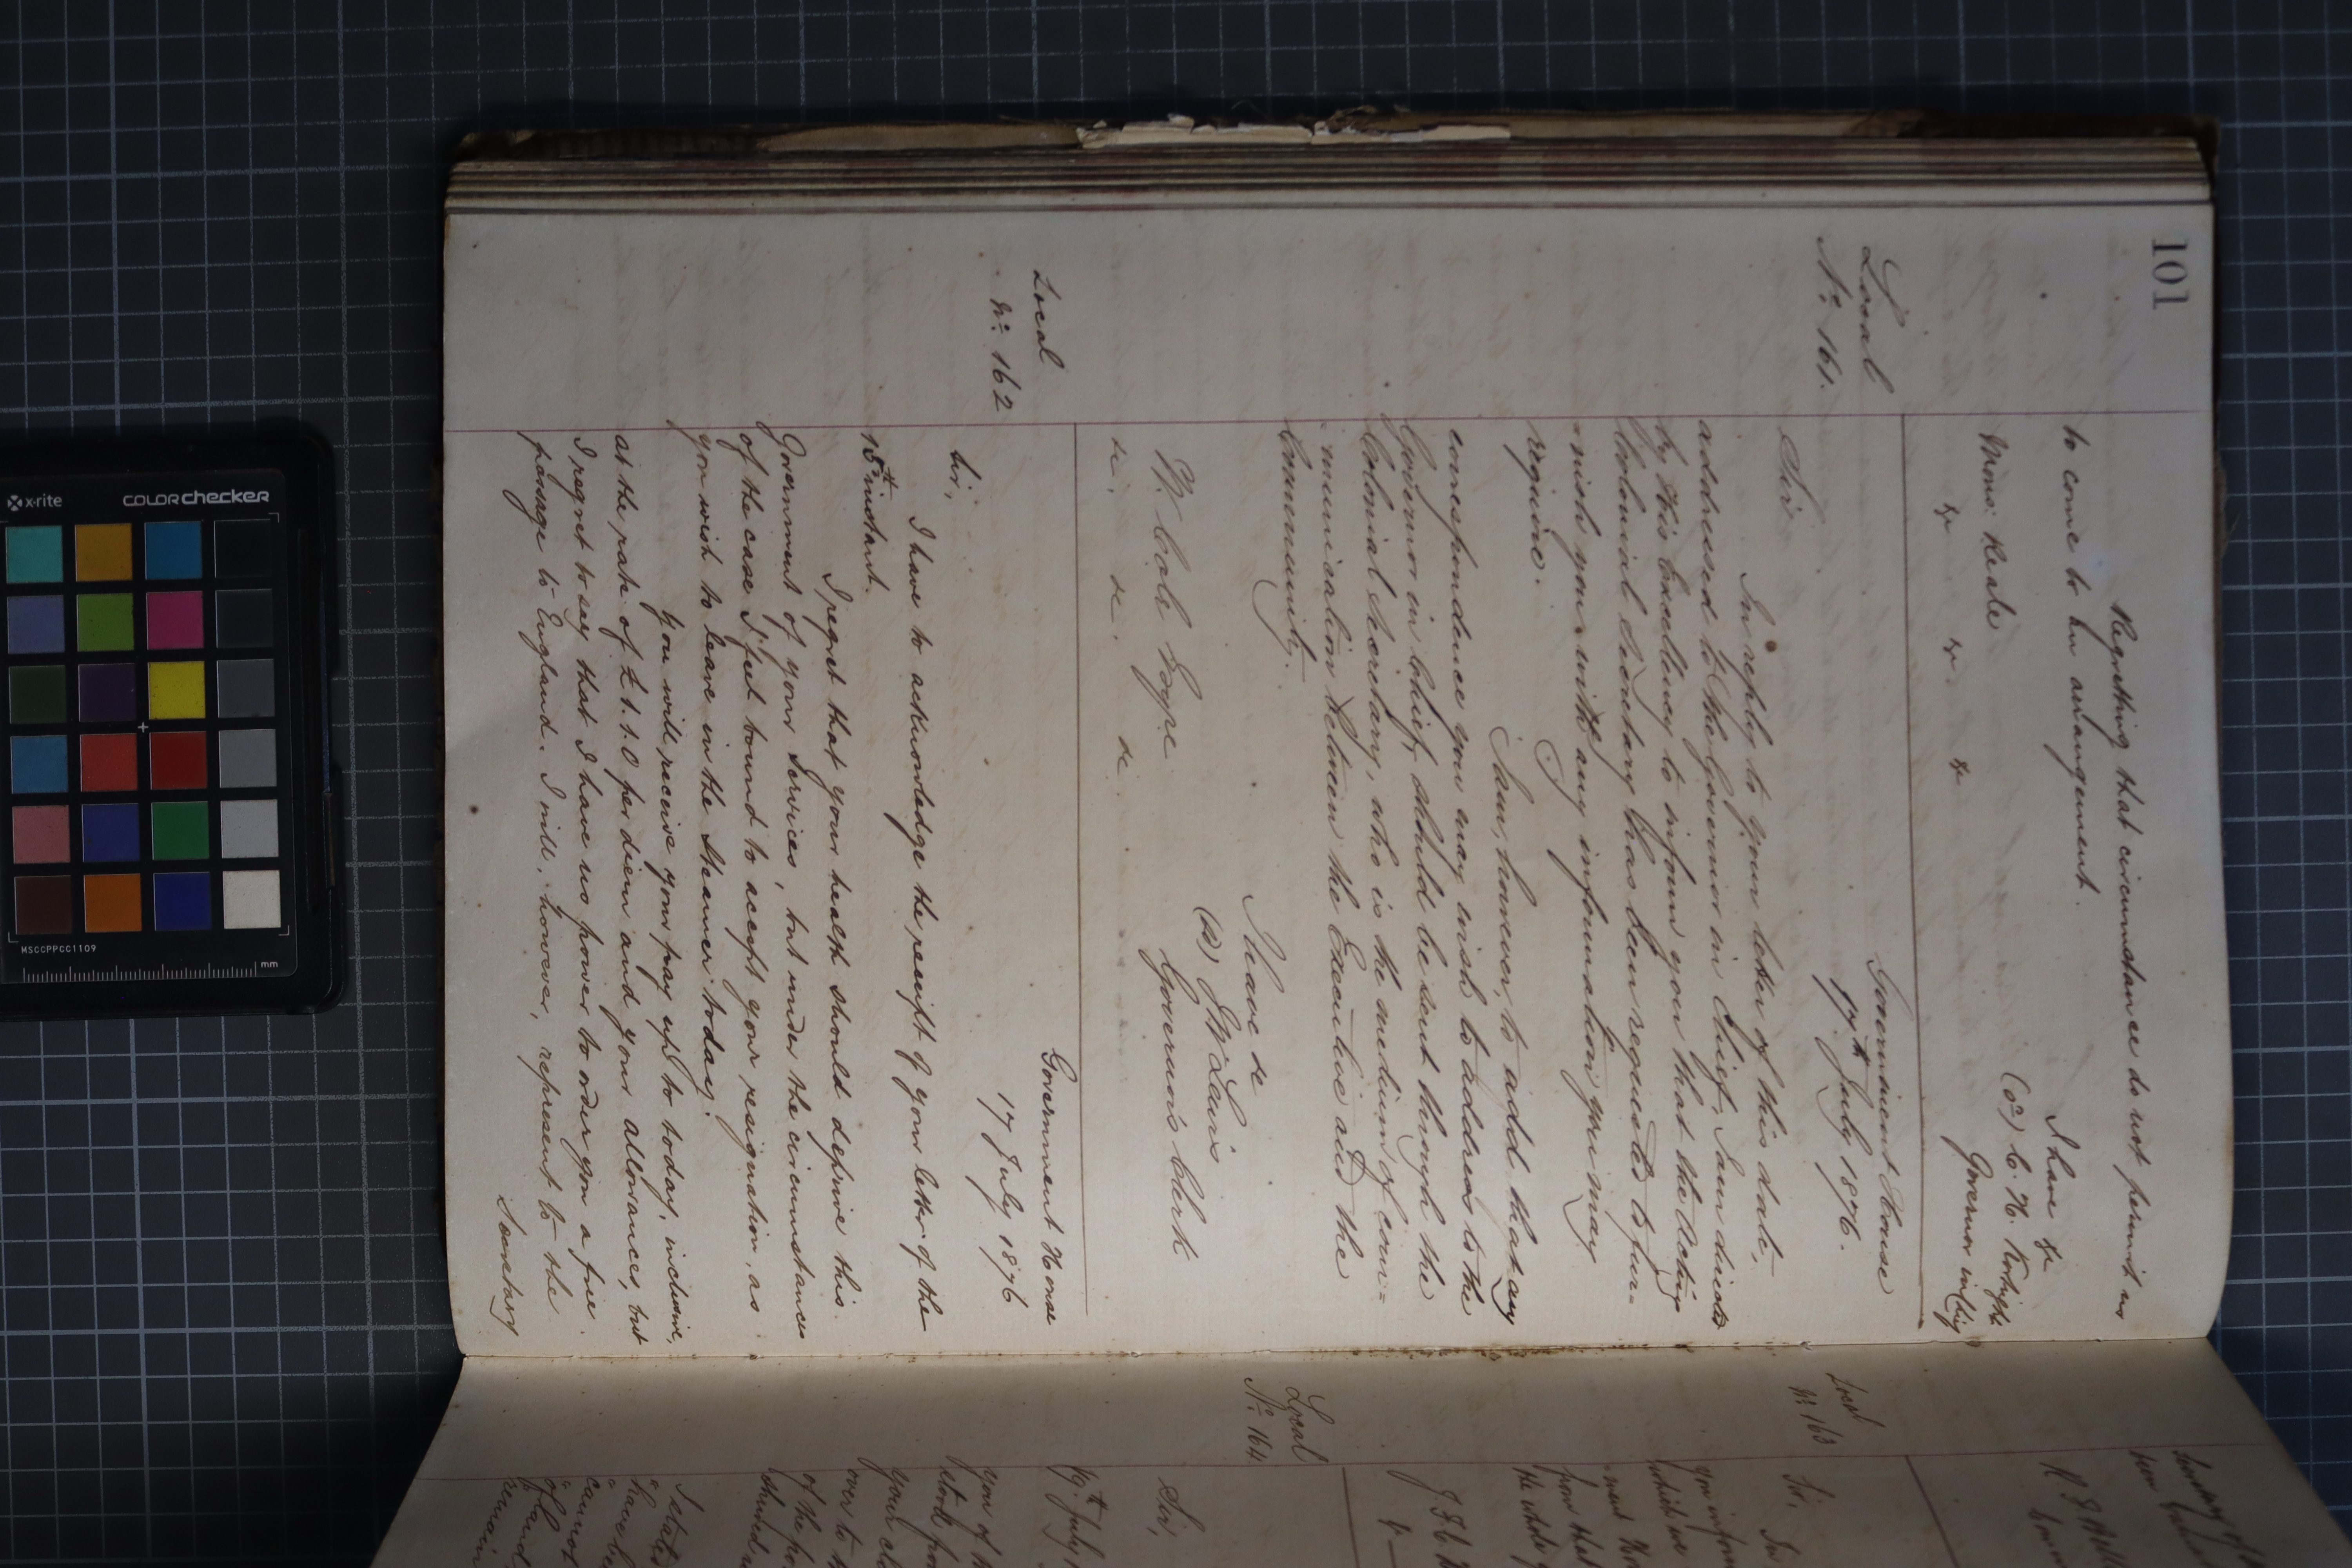 101
Regretting that circumstances do not permit us
to come to an arrangement.
I have &c
(sd) C. H. Kortright
Governor in Chief
Mons. Reale
&c &c &c
Local
No. 161.
Government House
17th July 1876.
Sir
In reply to your letter of this date,
addressed to the Governor in Chief, I am directed
by His Excellency to inform you that the Acting
Colonial Secretary has been requested to fur-
nish you with any information you may
require.
I am, however, to add that any
correspondence you may wish to address to the
Governor in Chief, should be sent through the
Colonial Secretary, who is the medium of com-
munication between the Executive and the
Community.
I have &c
(sd) J W Lewis
Governor's Clerk
W. Cole Esqre
&c. &c. &c.
Local
No. 162
Government House
17 July 1876
Sir,
I have to acknowledge the receipt of your letter of the
15th instant.
I regret that your health should deprive this
Government of your Services, but under the circumstances
of the case I feel bound to accept your resignation, as
you wish to leave in the Steamer today.
You will receive your pay up to today, inclusive,
at the rate of £1.1.0 per diem and your allowances, but
I regret to say that I have no power to order you a free
passage to England. I will, however, represent to the
Secretary
Secretary of
been
Local
No. 163
Sir,
In
you inform
which we
ment
from that
the whole
Local
No. 164
Sir,
19th July
you of
stock from
your
over to
of the
I state
have be
cannot
of land
remain